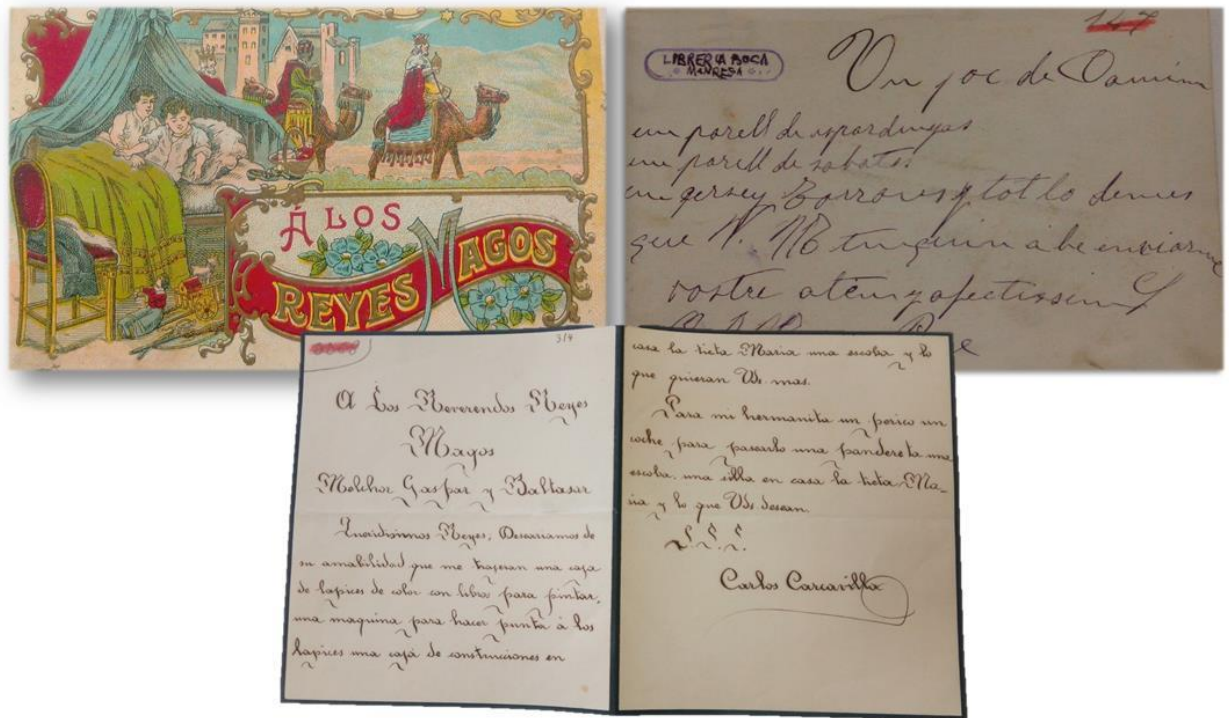 Á LOS
REYES MAGOS
LIBRERIA ROCA
MANRESA
Un joc de Domino
un parell de espardenyas
un parell de sabates.
un gersey Barrones y tot lo demes
que V. M tinguin a be enviarme
vostre atent y afectissim
319
A Los Reverendos Reyes
Magos
Melchor Gaspar y Baltasar
Queridisimos Reyes, Desearíamos de
su amabilidad que me trageran una caja
de lapices de color con libro para pintar,
una maquina para hacer punta á los
lapices una caja de construcciones en
casa la tieta Maria una escoba y lo
que quieran Vds. mas.
Para mi hermanita un perico un
coche para pasearlo una pandereta una
escoba una silla en casa la tieta Ma-
ria y lo que Vds. desean.
S. S. S.
Carlos Carcavilla